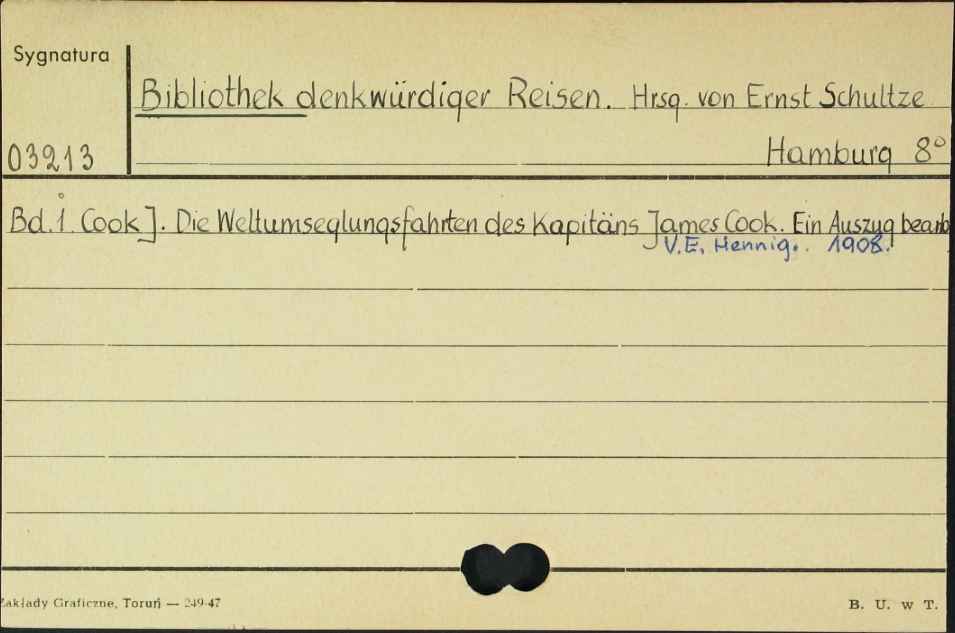 Sygnatura
Bibliothek denkwürdiger Reisen. Hrsg. von Ernst Schultze
03213
Hamburg 8°
Bd. 1. Cook J. Die Weltumseglungsfahrten des Kapitäns James Cook. Ein Auszug bearb
V.E. Hennig.. 1908.
Zakłady Graficzne, Toruń — 249-47
B. U. w T.